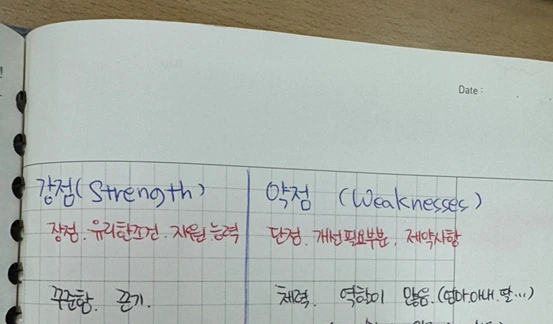 Date :
강점(Strength) 약점 (Weaknesses)
장점. 유리한조건. 자원.능력 단점. 개선필요부분. 제약사항
꾸준함. 끈기. 체력. 역할이 많음.(엄마.아내.딸…)